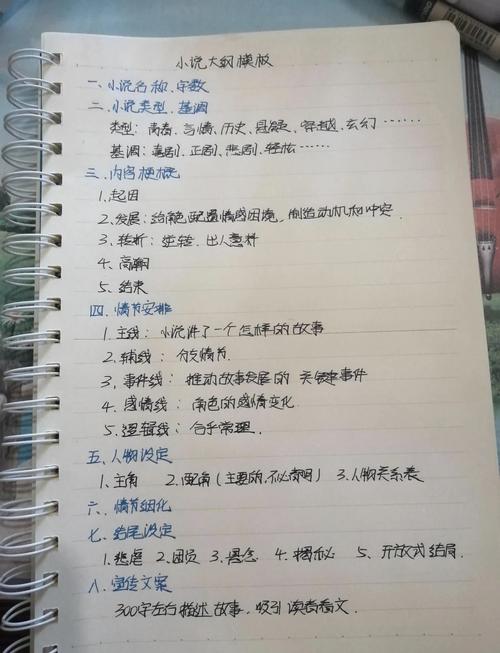 小说大纲模板
一、小说名称、字数
二、小说类型、基调
类型：青春、言情、历史、悬疑、穿越、玄幻……
基调：喜剧、正剧、悲剧、轻松……
三、内容梗概
1、起因
2、发展：给角色配置情感困境，制造动机和冲突.
3、转折：逆转、出人意料
4、高潮
5、结束
四、情节安排
1、主线：小说讲了一个怎样的故事
2、辅线：分支情节.
3、事件线：推动故事发展的关键事件
4、感情线：角色的感情变化.
5、逻辑线：合乎常理.
五、人物设定
1、主角 2、配角（主要的，不必表明） 3、人物关系表
六、情节细化
七、结尾设定
1、悲虐 2、团员 3、悬念 4、揭秘 5、开放式结局.
八、宣传文案
300字左右描述故事，吸引读者看文.